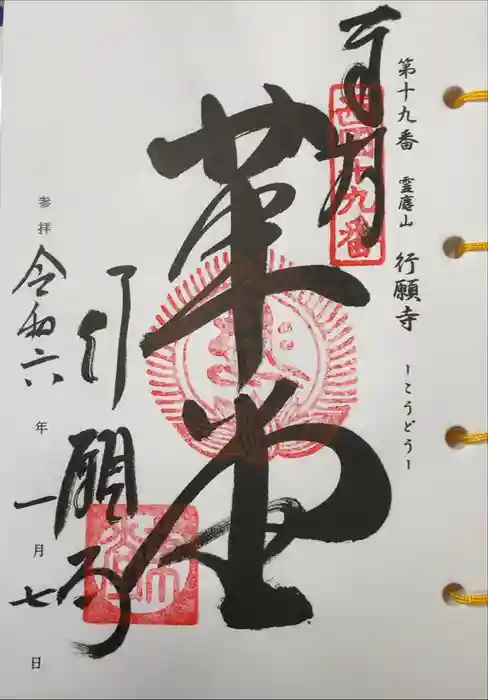 第十九番 霊應山 行願寺 ーこうどうー
奉拝
西国十九番
革堂
行願寺
参拝 令和六年一月七日